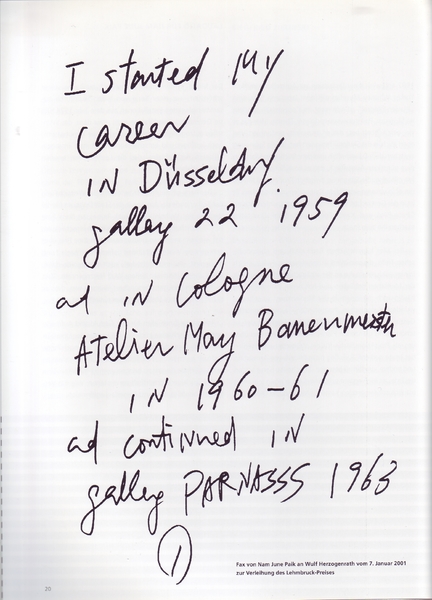 I started My
career
IN Düsseldorf
galley 22 1959
ad IN Cologne
Atelier Mary Bauermeister
IN 1960-61
ad continued IN
galley PARNASSS 1963
1
Fax von Nam June Paik an Wulf Herzogenrath vom 7. Januar 2001
zur Verleihung des Lehmbruck-Preises
20